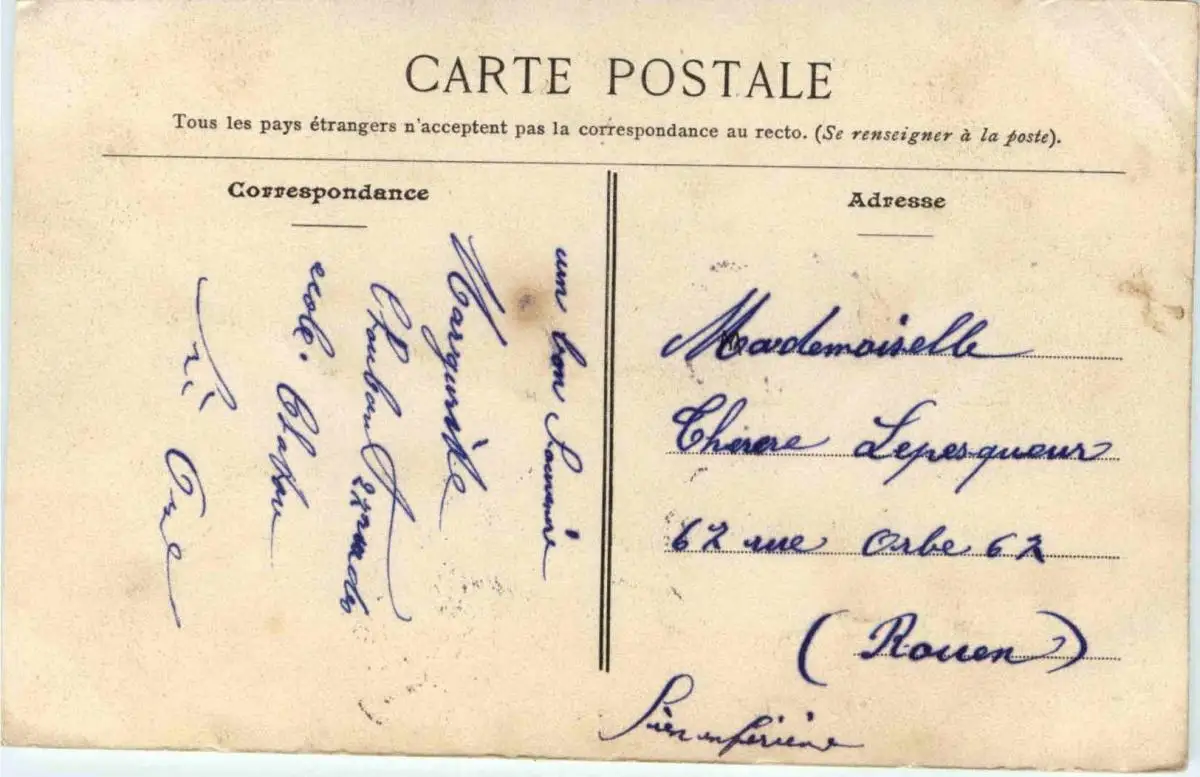 CARTE POSTALE
Tous les pays étrangers n'acceptent pas la correspondance au recto. (Se renseigner à la poste).
Correspondance
un bon Souvenir
Marguerite
ecole.
Adresse
Mademoiselle
Therere Lepesqueur
62 rue Orbe 62
(Rouen)